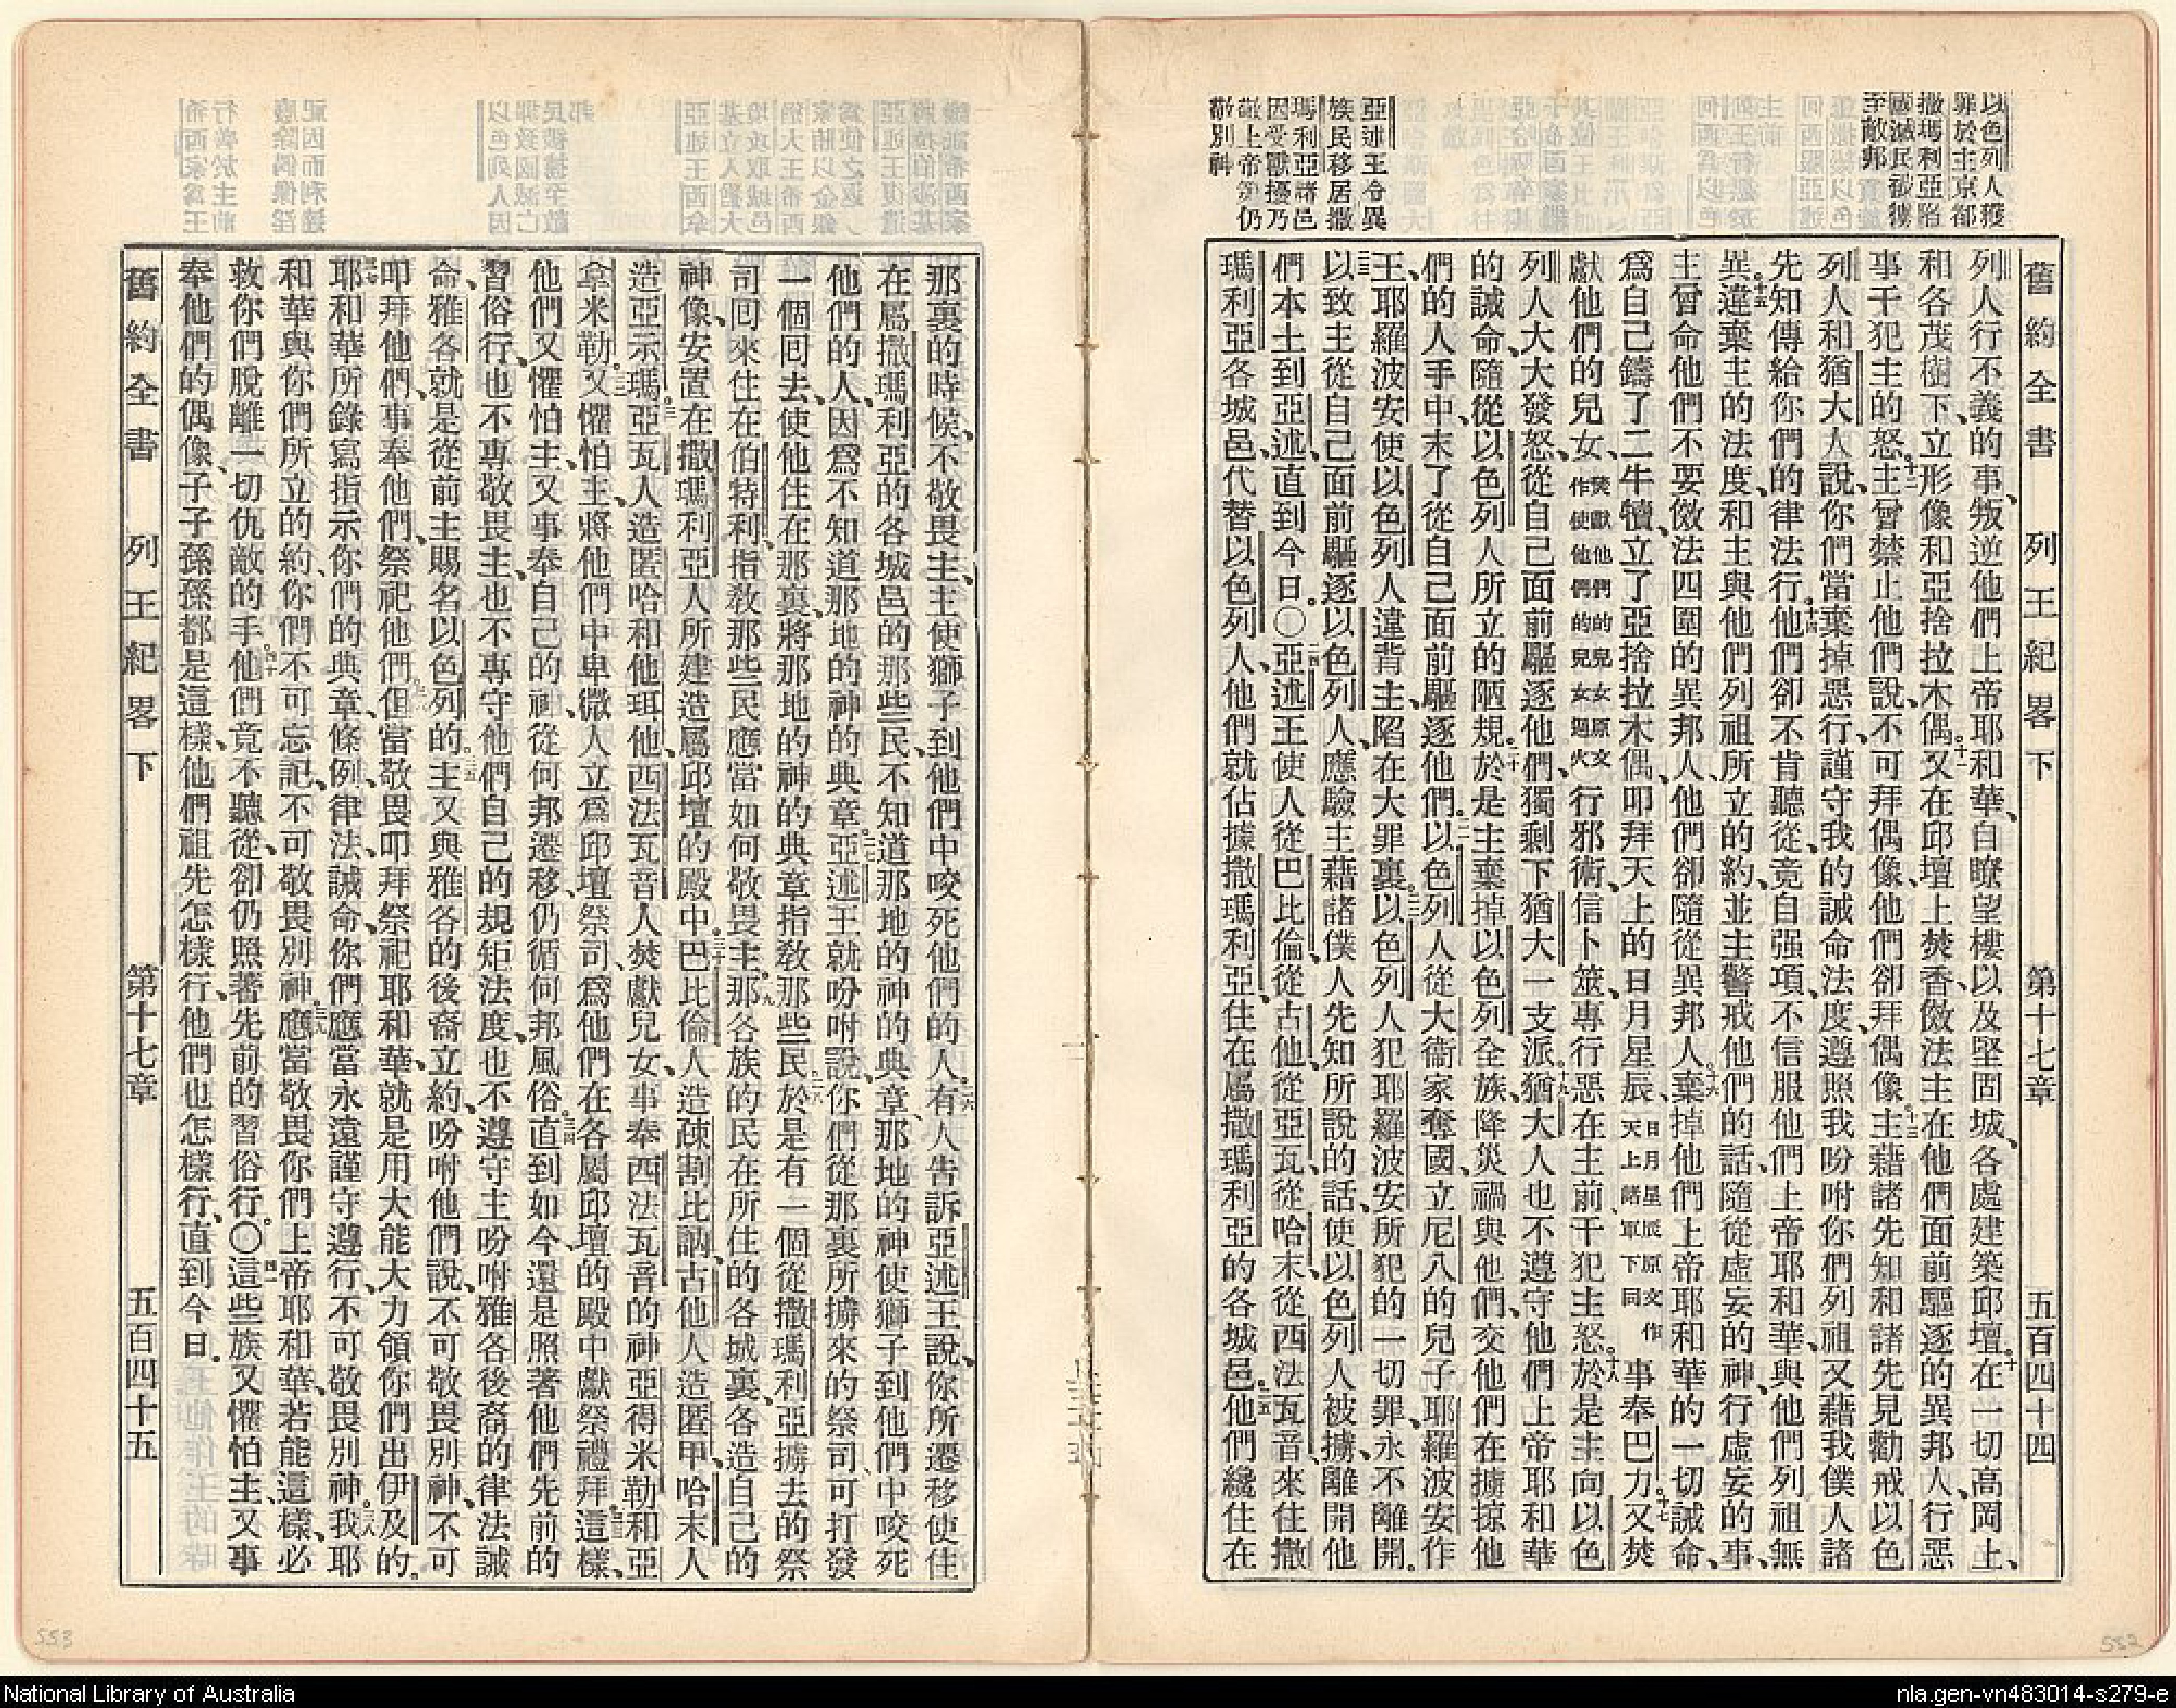 以色列人獲
罪於主京都
撒瑪利亞陷
國滅民被擄
至敵邦
亞述王令異
族民移居撒
瑪利亞諸邑
因受獸擾乃
敬上帝第仍
敬別神
舊約全書 列王紀畧下 第十七章 五百四十四
列人行不義的事、叛逆他們上帝耶和華、自瞭望樓以及堅固城、各處建築邱壇。十在一切高岡上、
和各茂樹下、立形像和亞捨拉木偶。十一又在邱壇上焚香、傚法主在他們面前驅逐的異邦人、行惡
事干犯主的怒。十二主曾禁止他們說、不可拜偶像、他們卻拜偶像。十三主藉諸先知和諸先見勸戒以色
列人和猶大人說、你們當棄掉惡行、謹守我的誡命法度、遵照我吩咐你們列祖又藉我僕人諸
先知傳給你們的律法行。十四他們卻不肯聽從、竟自强項、不信服他們上帝耶和華、與他們列祖無
異。十五違棄主的法度、和主與他們列祖所立的約、並主警戒他們的話、隨從虛妄的神、行虛妄的事、
主曾命他們不要傚法四圍的異邦人、他們卻隨從異邦人。十六棄掉他們上帝耶和華的一切誡命、
爲自己鑄了二牛犢、立了亞捨拉木偶、叩拜天上的日月星辰、日月星辰原文作天上諸軍下同事奉巴力。十七又焚
獻他們的兒女、焚獻他們的兒女原文作使他們的兒女過火行邪術、信卜筮、專行惡在主前、干犯主怒。十八於是主向以色
列人大大發怒、從自己面前驅逐他們、獨剩下猶大一支派。十九猶大人也不遵守他們上帝耶和華
的誡命、隨從以色列人所立的陋規。二十於是主棄掉以色列全族、降災禍與他們、交他們在擄掠他
們的人手中、末了從自己面前驅逐他們。二一以色列人從大衞家奪國、立尼八的兒子耶羅波安作
王、耶羅波安使以色列人違背主、陷在大罪裏。二二以色列人犯耶羅波安所犯的一切罪、永不離開。
二三以致主從自己面前驅逐以色列人、應驗主藉諸僕人先知所說的話、使以色列人被擄、離開他
們本土到亞述、直到今日。〇二四亞述王使人從巴比倫、從古他、從亞瓦、從哈末、從西法瓦音、來住撒
瑪利亞各城邑、代替以色列人、他們就佔據撒瑪利亞、住在屬撒瑪利亞的各城邑。二五他們纔住在
那裏的時候、不敬畏主、主使獅子到他們中咬死他們的人。二六有人告訴亞述王說、你所遷移使住
在屬撒瑪利亞的各城邑的那些民、不知道那地的神的典章、那地的神使獅子到他們中咬死
他們的人、因爲不知道那地的神的典章。二七亞述王就吩咐說、你們從那裏所擄來的祭司、可打發
一個回去、使他住在那裏、將那地的神的典章指敎那些民。二八於是有一個從撒瑪利亞擄去的祭
司回來住在伯特利、指敎那些民應當如何敬畏主。二九那各族的民在所住的各城裏、各造自己的
神像、安置在撒瑪利亞人所建造屬邱壇的殿中。三十巴比倫人造疎割比訥、古他人造匿甲、哈末人
造亞示瑪。三一亞瓦人造匿哈和他珥他、西法瓦音人焚獻兒女、事奉西法瓦音的神亞得米勒和亞
拿米勒。三二又懼怕主、將他們中卑微人立爲邱壇祭司、爲他們在各屬邱壇的殿中獻祭禮拜。三三這樣、
他們又懼怕主、又事奉自己的神、從何邦遷移、仍循何邦風俗。三四直到如今、還是照著他們先前的
習俗行、也不專敬畏主、也不專守他們自己的規矩法度、也不遵守主吩咐雅各後裔的律法誡
命、雅各就是從前主賜名以色列的。三五主又與雅各的後裔立約、吩咐他們說、不可敬畏別神、不可
叩拜他們、事奉他們、祭祀他們。三六但當敬畏叩拜祭祀耶和華、就是用大能大力領你們出伊及的。
三七耶和華所錄寫指示你們的典章、條例、律法、誡命、你們應當永遠謹守遵行、不可敬畏別神。三八我耶
和華與你們所立的約、你們不可忘記、不可敬畏別神。三九應當敬畏你們上帝耶和華、若能這樣、必
救你們脫離一切仇敵的手。四十他們竟不聽從、卻仍照著先前的習俗行。〇四一這些族又懼怕主、又事
奉他們的偶像、子子孫孫都是這樣、他們祖先怎樣行、他們也怎樣行、直到今日。
舊約全書 列王紀畧下 第十七章 五百四十五
553
552
National Library of Australia
nla.gen-vn483014-s279-e